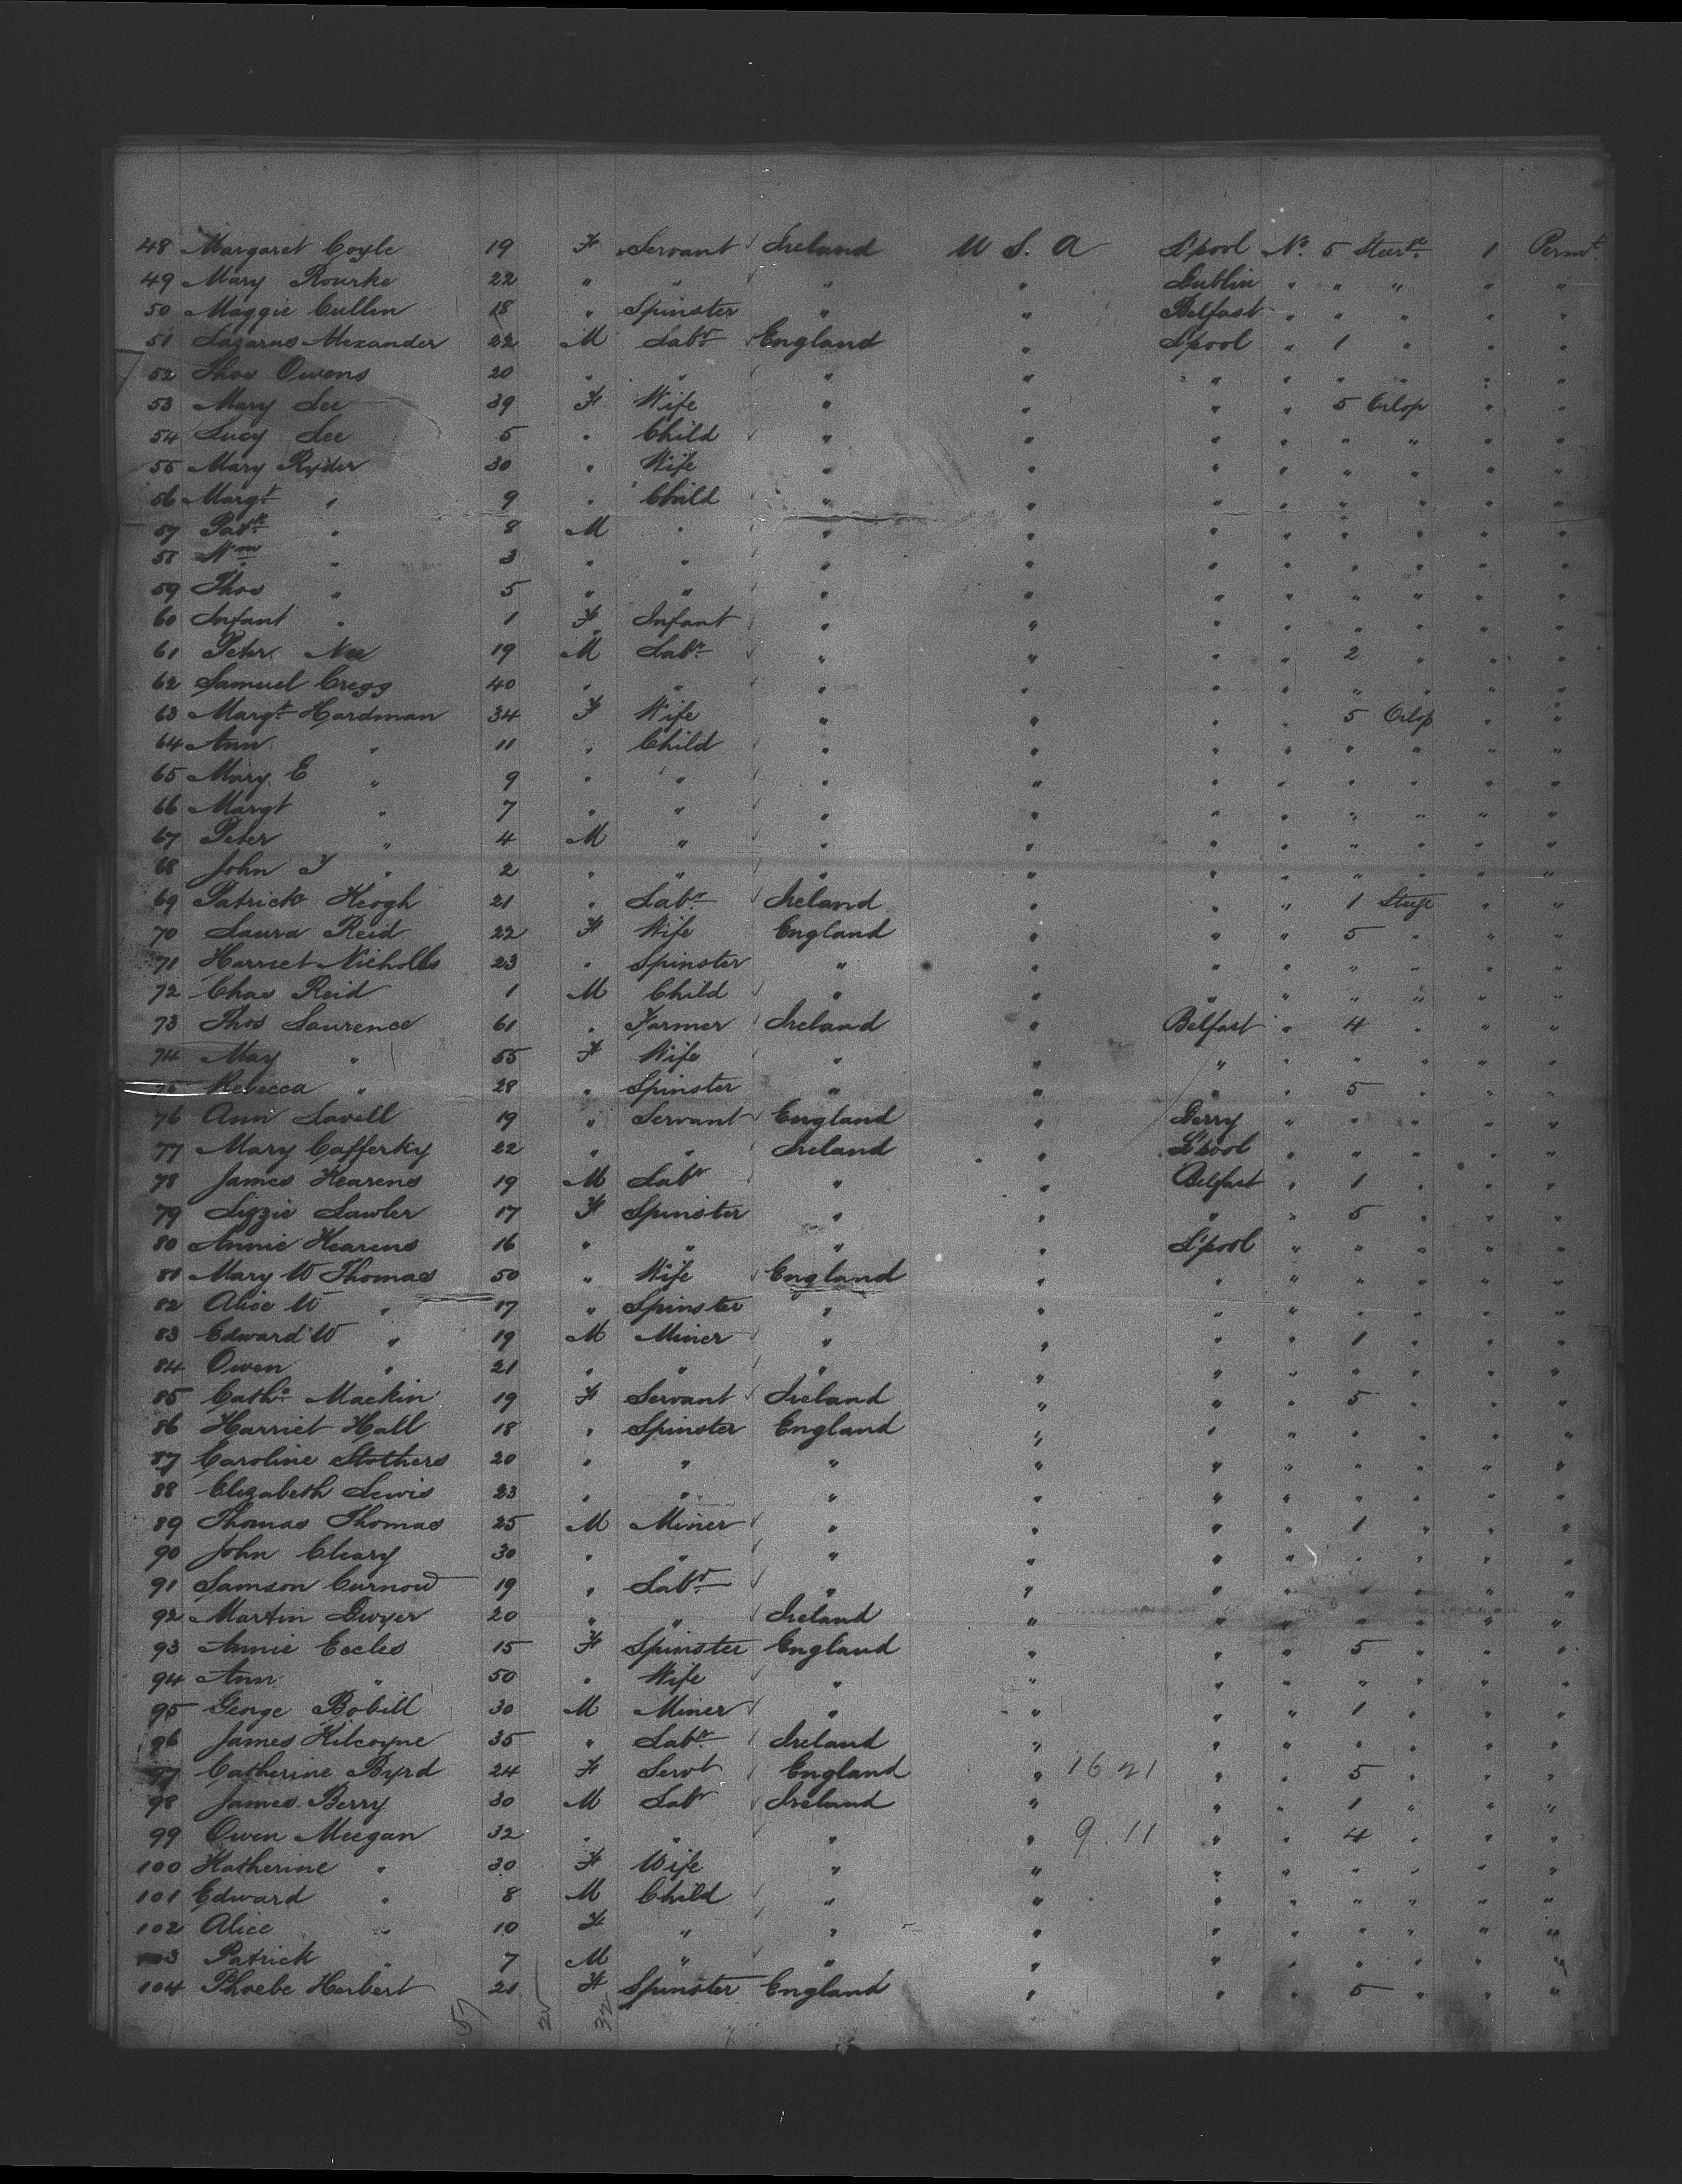 48 Margaret Coyle 19 F Servant Ireland U S. A L'pool No. 5 Steer. 1 Permt.
49 Mary Rourke 22 " " " " Dublin " " " " "
50 Maggie Cullen 18 " Spinster " " Belfast " " " " "
51 Lazarus Alexander 22 M Labr. England " L'pool " 1 " " "
52 Thos Owens 20 " " " " " " " " " "
53 Mary Lee 39 F Wife " " " " 5 Orlop " "
54 Lucy Lee 5 " Child " " " " " " " "
55 Mary Ryder 30 " Wife " " " " " " " "
56 Margt. " 9 " Child " " " " " " " "
57 Patk. " 8 M " " " " " " " " "
58 Wm " 3 " " " " " " " " " "
59 Thos " 5 " " " " " " " " " "
60 Infant " 1 F Infant " " " " " " " "
61 Peter Nee 19 M Labr. " " " " 2 " " "
62 Samuel Cregg 40 " " " " " " " " " "
63 Margt. Hardman 34 F Wife " " " " 5 Orlop " "
64 Ann " 11 " Child " " " " " " " "
65 Mary E " 9 " " " " " " " " " "
66 Margt " 7 " " " " " " " " " "
67 Peter " 4 M " " " " " " " " "
68 John " 2 " " " " " " " " " "
69 Patrick Keogh 21 " Labr. Ireland " " " 1 Steege " "
70 Laura Reid 22 F Wife England " " " 5 " " "
71 Harriet Nicholls 23 " Spinster " " " " " " " "
72 Chas Reid 1 M Child " " " " " " " "
73 Thos Laurence 61 " Farmer Ireland " Belfast " 4 " " "
74 May " 55 F Wife " " " " " " " "
75 Rebecca " 28 " Spinster " " " " 5 " " "
76 Ann Lavell 19 " Servant England " Derry " " " " "
77 Mary Cafferky 22 " " Ireland " L'pool " " " " "
78 James Kearens 19 M Labr " " Belfast " 1 " " "
79 Lizzie Lawler 17 F Spinster " " " " 5 " " "
80 Annie Kearens 16 " " " " L'pool " " " " "
81 Mary W Thomas 50 " Wife England " " " " " " "
82 Alice W " 17 " Spinster " " " " " " " "
83 Edward W " 19 M Miner " " " " 1 " " "
84 Owen " 21 " " " " " " " " " "
85 Cathe. Mackin 19 F Servant Ireland " " " 5 " " "
86 Harriet Hall 18 " Spinster England " " " " " " "
87 Caroline Stothers 20 " " " " " " " " " "
88 Elizabeth Lewis 23 " " " " " " " " " "
89 Thomas Thomas 25 M Miner " " " " 1 " " "
90 John Cleary 30 " " " " " " " " " "
91 Samson Curnow 19 " Labr. " " " " " " " "
92 Martin Dwyer 20 " " Ireland " " " " " " "
93 Annie Eccles 15 F Spinster England " " " 5 " " "
94 Ann " 50 " Wife " " " " " " " "
95 George Bobill 30 M Miner " " " " 1 " " "
96 James Kilcoyne 35 " Labr. Ireland " " " " " " "
97 Catherine Byrd 24 F Servt England " 16 21 " " 5 " " "
98 James Berry 30 M Labr Ireland " " " 1 " " "
99 Owen Meegan 32 " " " " 9.11 " " 4 " " "
100 Katherine " 30 F Wife " " " " " " " "
101 Edward " 8 M Child " " " " " " " "
102 Alice " 10 F " " " " " " " " "
103 Patrick " 7 M " " " " " " " " "
104 Phoebe Herbert 21 F Spinster England " " " 5 " " "
57 25 32